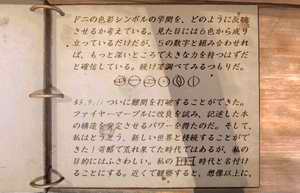 ドニの色彩シンボルの学問を、どのように反映
させるか考えている。見た目には6色から成り
立っているだけだが、5の数字と組み合わせれ
ば、もっと深いところで大きな力を持つはずだ
と確信している。続けて調べてみるつもりだ。
ついに難関を打破することができた。
ファイヤーマーブルに改良を試み、記述した本
の構造を安定させるパワーを得たのだ。そして、
私はとうとう、新しい世界と接続することがで
きた！奇妙で荒れ果てた時代ではあるが、私の
目的にはふさわしい。私の 時代と名付け
ることにする。近くで観察すると、想像以上に